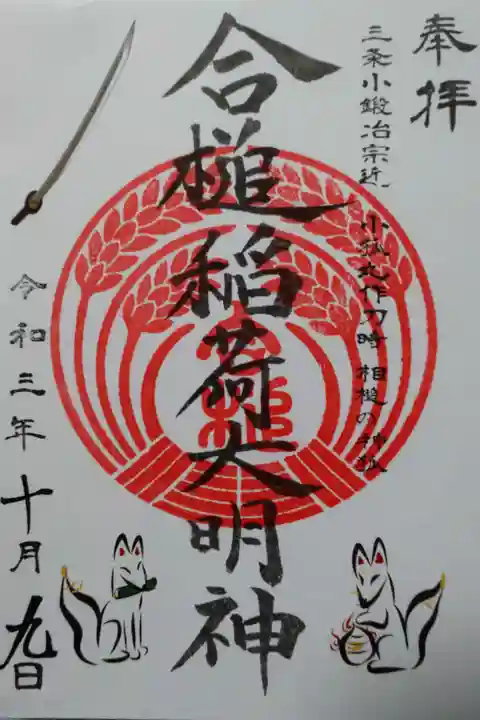 奉拝
三条小鍛冶宗近
小狐丸作刀時 相槌の神狐
合槌稲荷大明神
令和三年十月九日